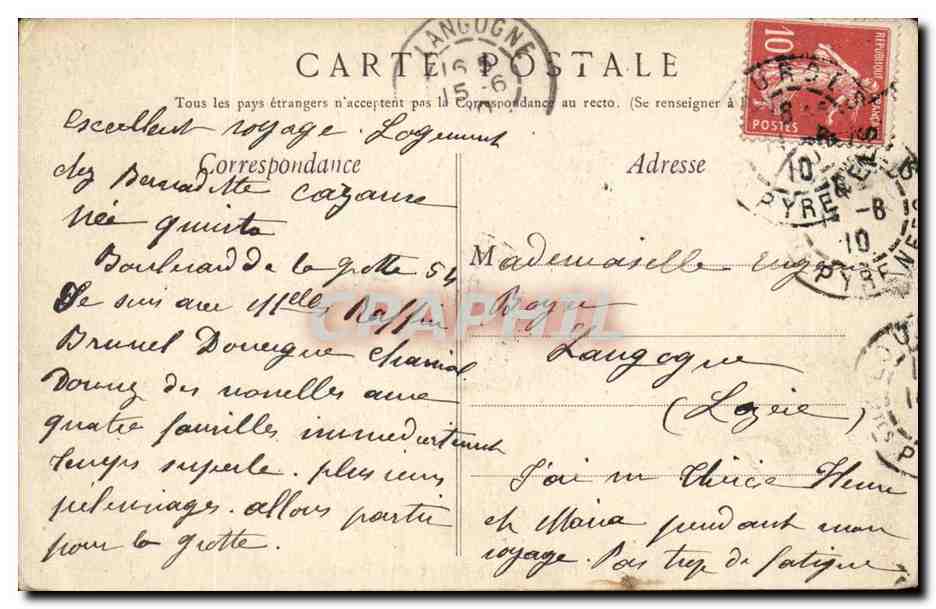 CARTE POSTALE
Tous les pays étrangers n'acceptent pas la Correspondance au recto. (Se renseigner à
LANGOGNE
15 -6
10
RÉPUBLIQUE FRANÇAISE
POSTES
10
PYRE
-6
10
PYRE
Correspondance
Adresse
excellent voyage. Logement
chez Bernadette Cazaux
née
Boulevard de la grotte 54
Je suis avec Melles Raffin
Brunel Donergue Chanial
Donnez des nouvelles aux
quatre familles immédiatement
temps superbe. plusieurs
pèlerinages. allons partir
pour la grotte.
Mademoiselle
Langogne
(Lozère)
J'ai vu
et Maria pendant mon
voyage. Pas trop de fatigue
CPAPHIL